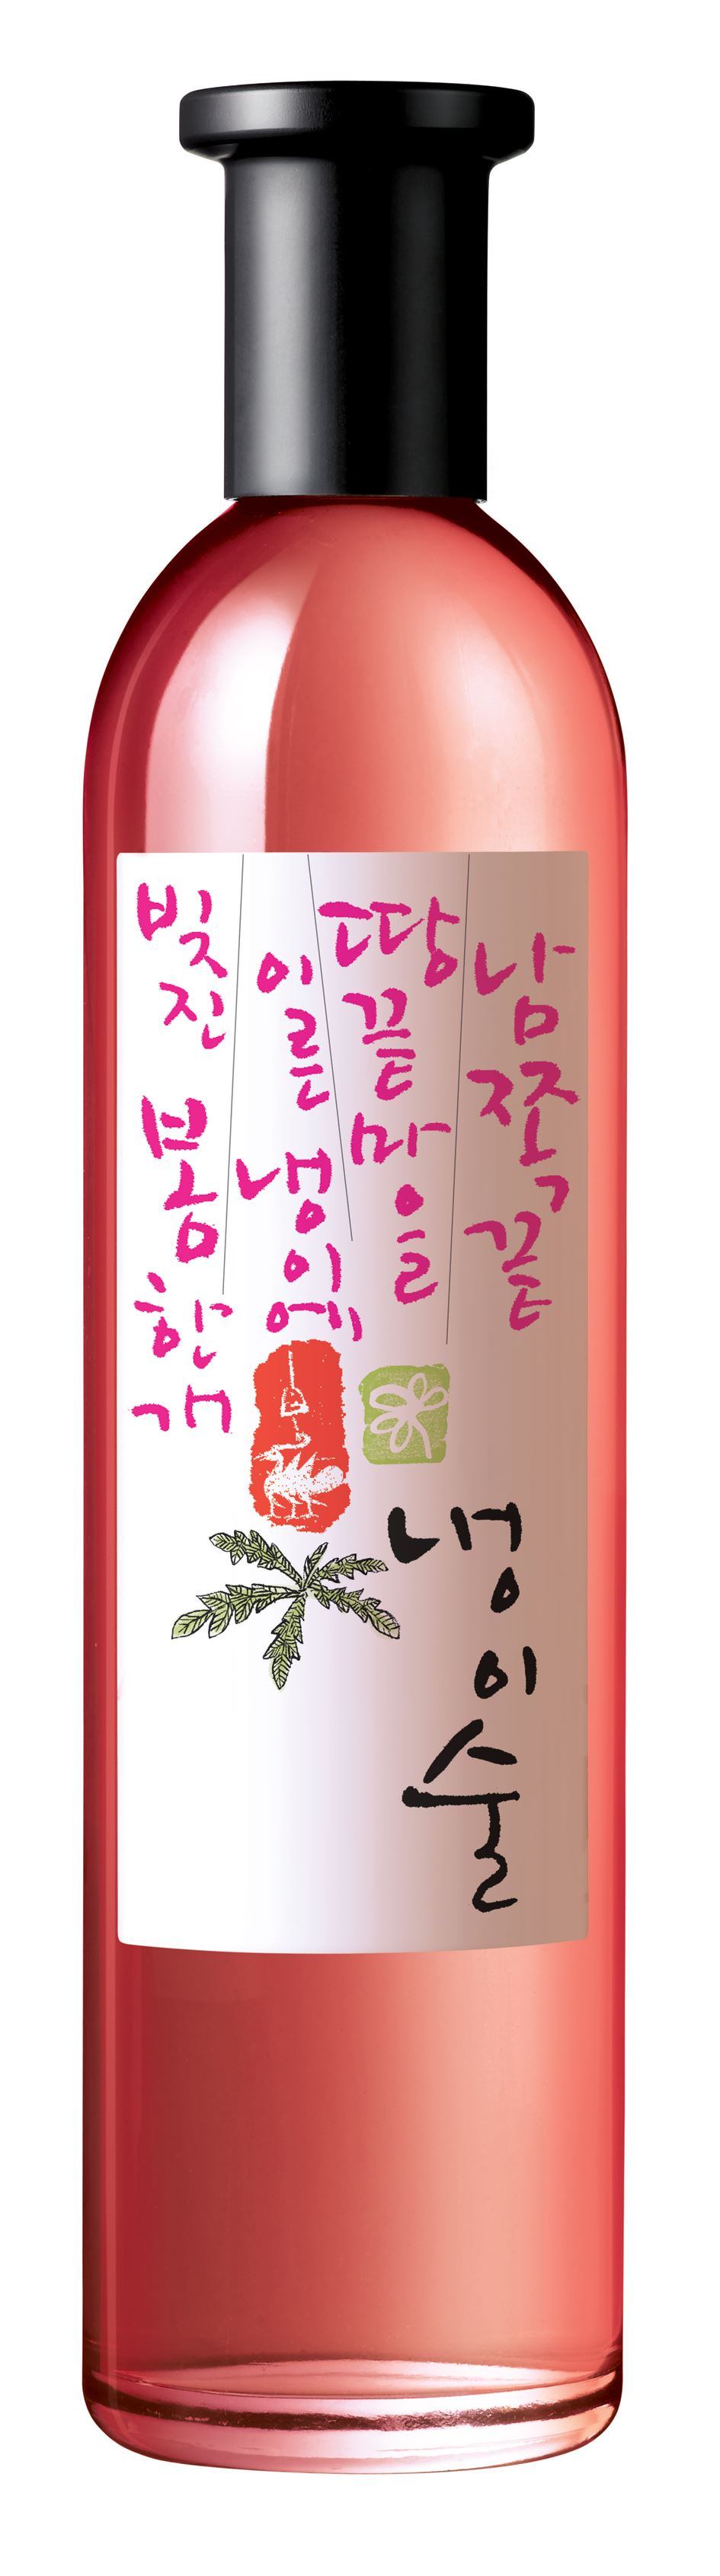 남쪽끝
땅끝마을
이른 냉이에
빚진 봄 한 개
냉이술